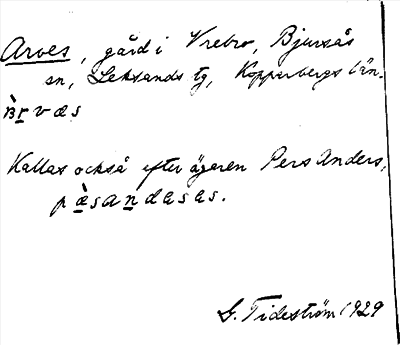 Arves, gård i Vrebro, Bjursås
sn, Leksands tg, Kopparbergs län.
àrvæs
Kallas också efter ägaren Pers Anders,
pæ̀sandasas.
G. Tideström 1929